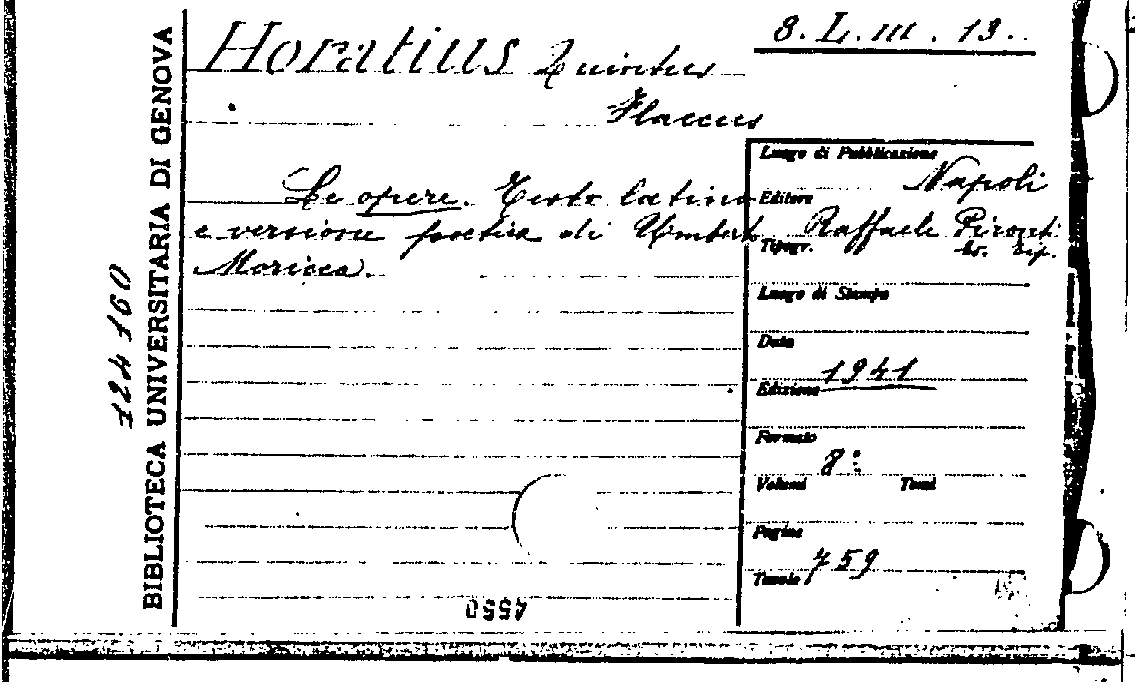 8. L. III. 13.
Horatius Quintus
Flaccus
Le opere. Testo latino
e versione poetica di Umberto
Moricca.
Luogo di Pubblicazione
Napoli
Editore
Raffaele Pironti
Tipogr.
Luogo di Stampa
Data
1941
Edizione
Formato
8:
Volumi Tomi
Pagine
759
Tavole
4550
BIBLIOTECA UNIVERSITARIA DI GENOVA
124160